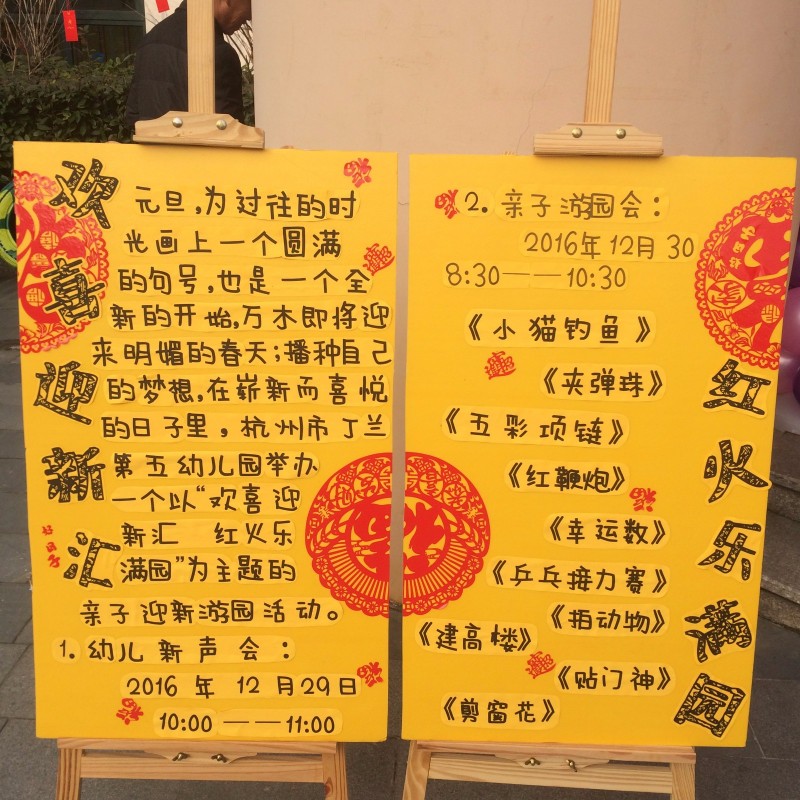 欢喜迎新汇
元旦,为过往的时
光画上一个圆满
的句号,也是一个全
新的开始,万木即将迎
来明媚的春天;播种自己
的梦想,在崭新而喜悦
的日子里，杭州市丁兰
第五幼儿园举办
一个以“欢喜迎
新汇 红火乐
满园”为主题的
亲子迎新游园活动。
1. 幼儿新声会：
2016年12月29日
10:00——11:00
2. 亲子游园会：
2016年12月30
8:30——10:30
《小猫钓鱼》
《夹弹珠》
《五彩项链》
《红鞭炮》
《幸运数》
《乒乓接力赛》
《拍动物》
《建高楼》
《贴门神》
《剪窗花》
红火乐满园